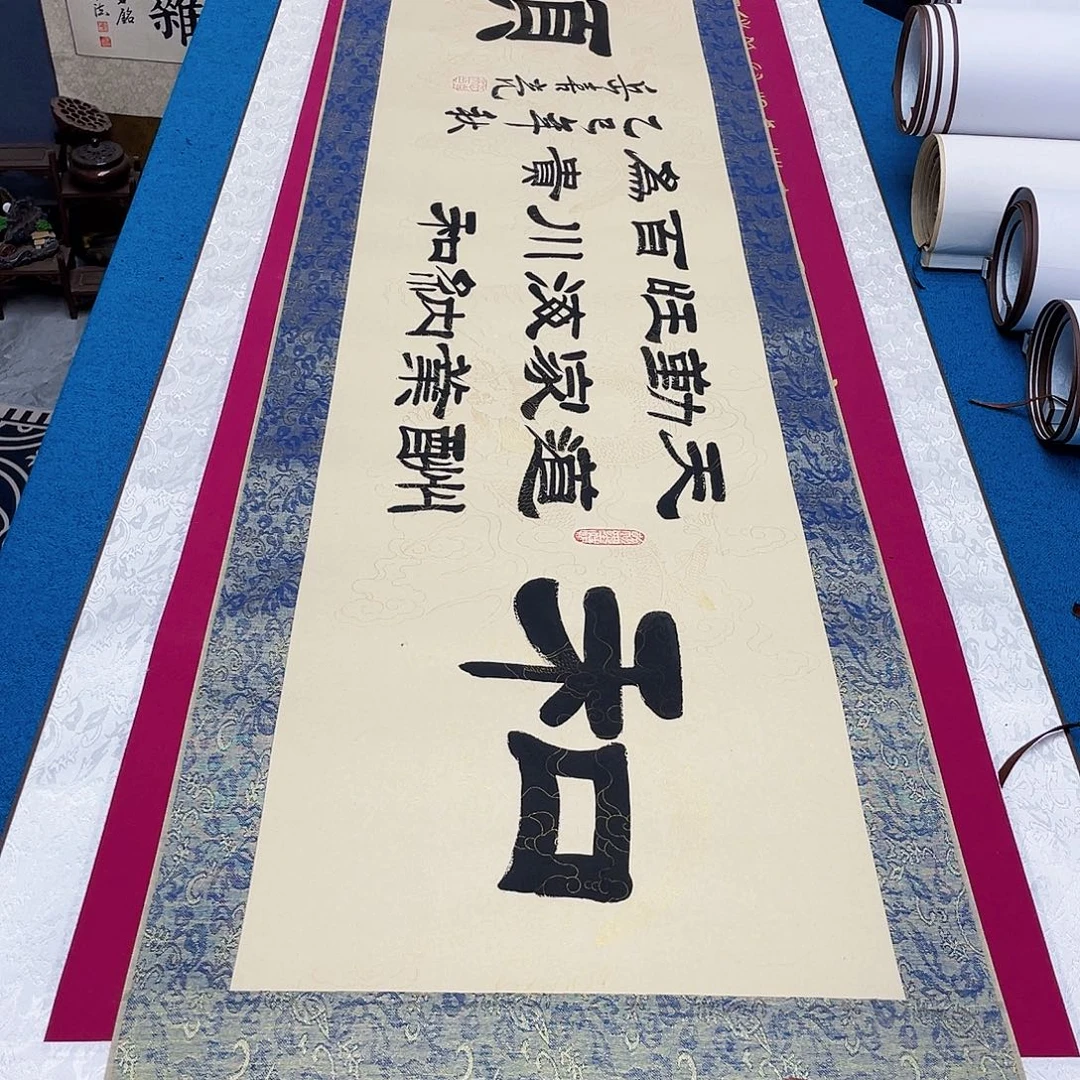 和
天道酬
勤家業
旺海納
百川和
為貴
乙巳年秋